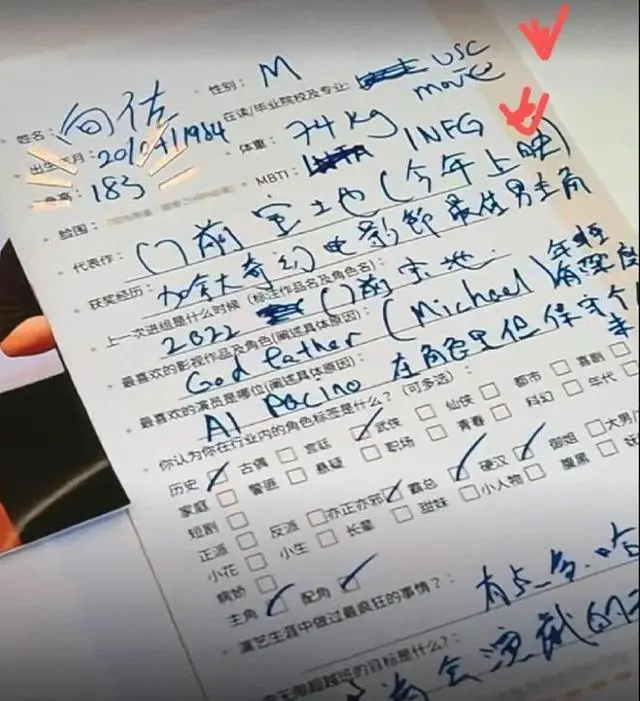 姓名：向佐 性别：M
出生年月：20/09/1984 在读/毕业院校及专业：USC movie
身高：183 体重：74kg
MBTI：INFG
脸围：
代表作：门前宝地(今年上映)
获奖经历：加拿大奇幻电影節最佳男主角
上一次进组是什么时候（标注作品名及角色名）：
2022 门前宝地.
最喜欢的影视作品及角色(阐述具体原因)：
God father (Michael)
最喜欢的演员是哪位(阐述具体原因)：
Al Pacino 在角色里但保守个
你认为你在行业内的角色标签是什么？（可多选）：
历史 古偶 宫廷 武侠 仙侠 都市 喜剧
家庭 警匪 悬疑 职场 青春 科幻 年代
短剧
正派 反派 亦正亦邪 霸总 硬汉 御姐 大男
小花 小生 长辈 甜妹 小人物 腹黑
病娇
主角 配角
演艺生涯中做过最疯狂的事情？：有点多.哈
无限超越班的目标是什么？：
会演戏的